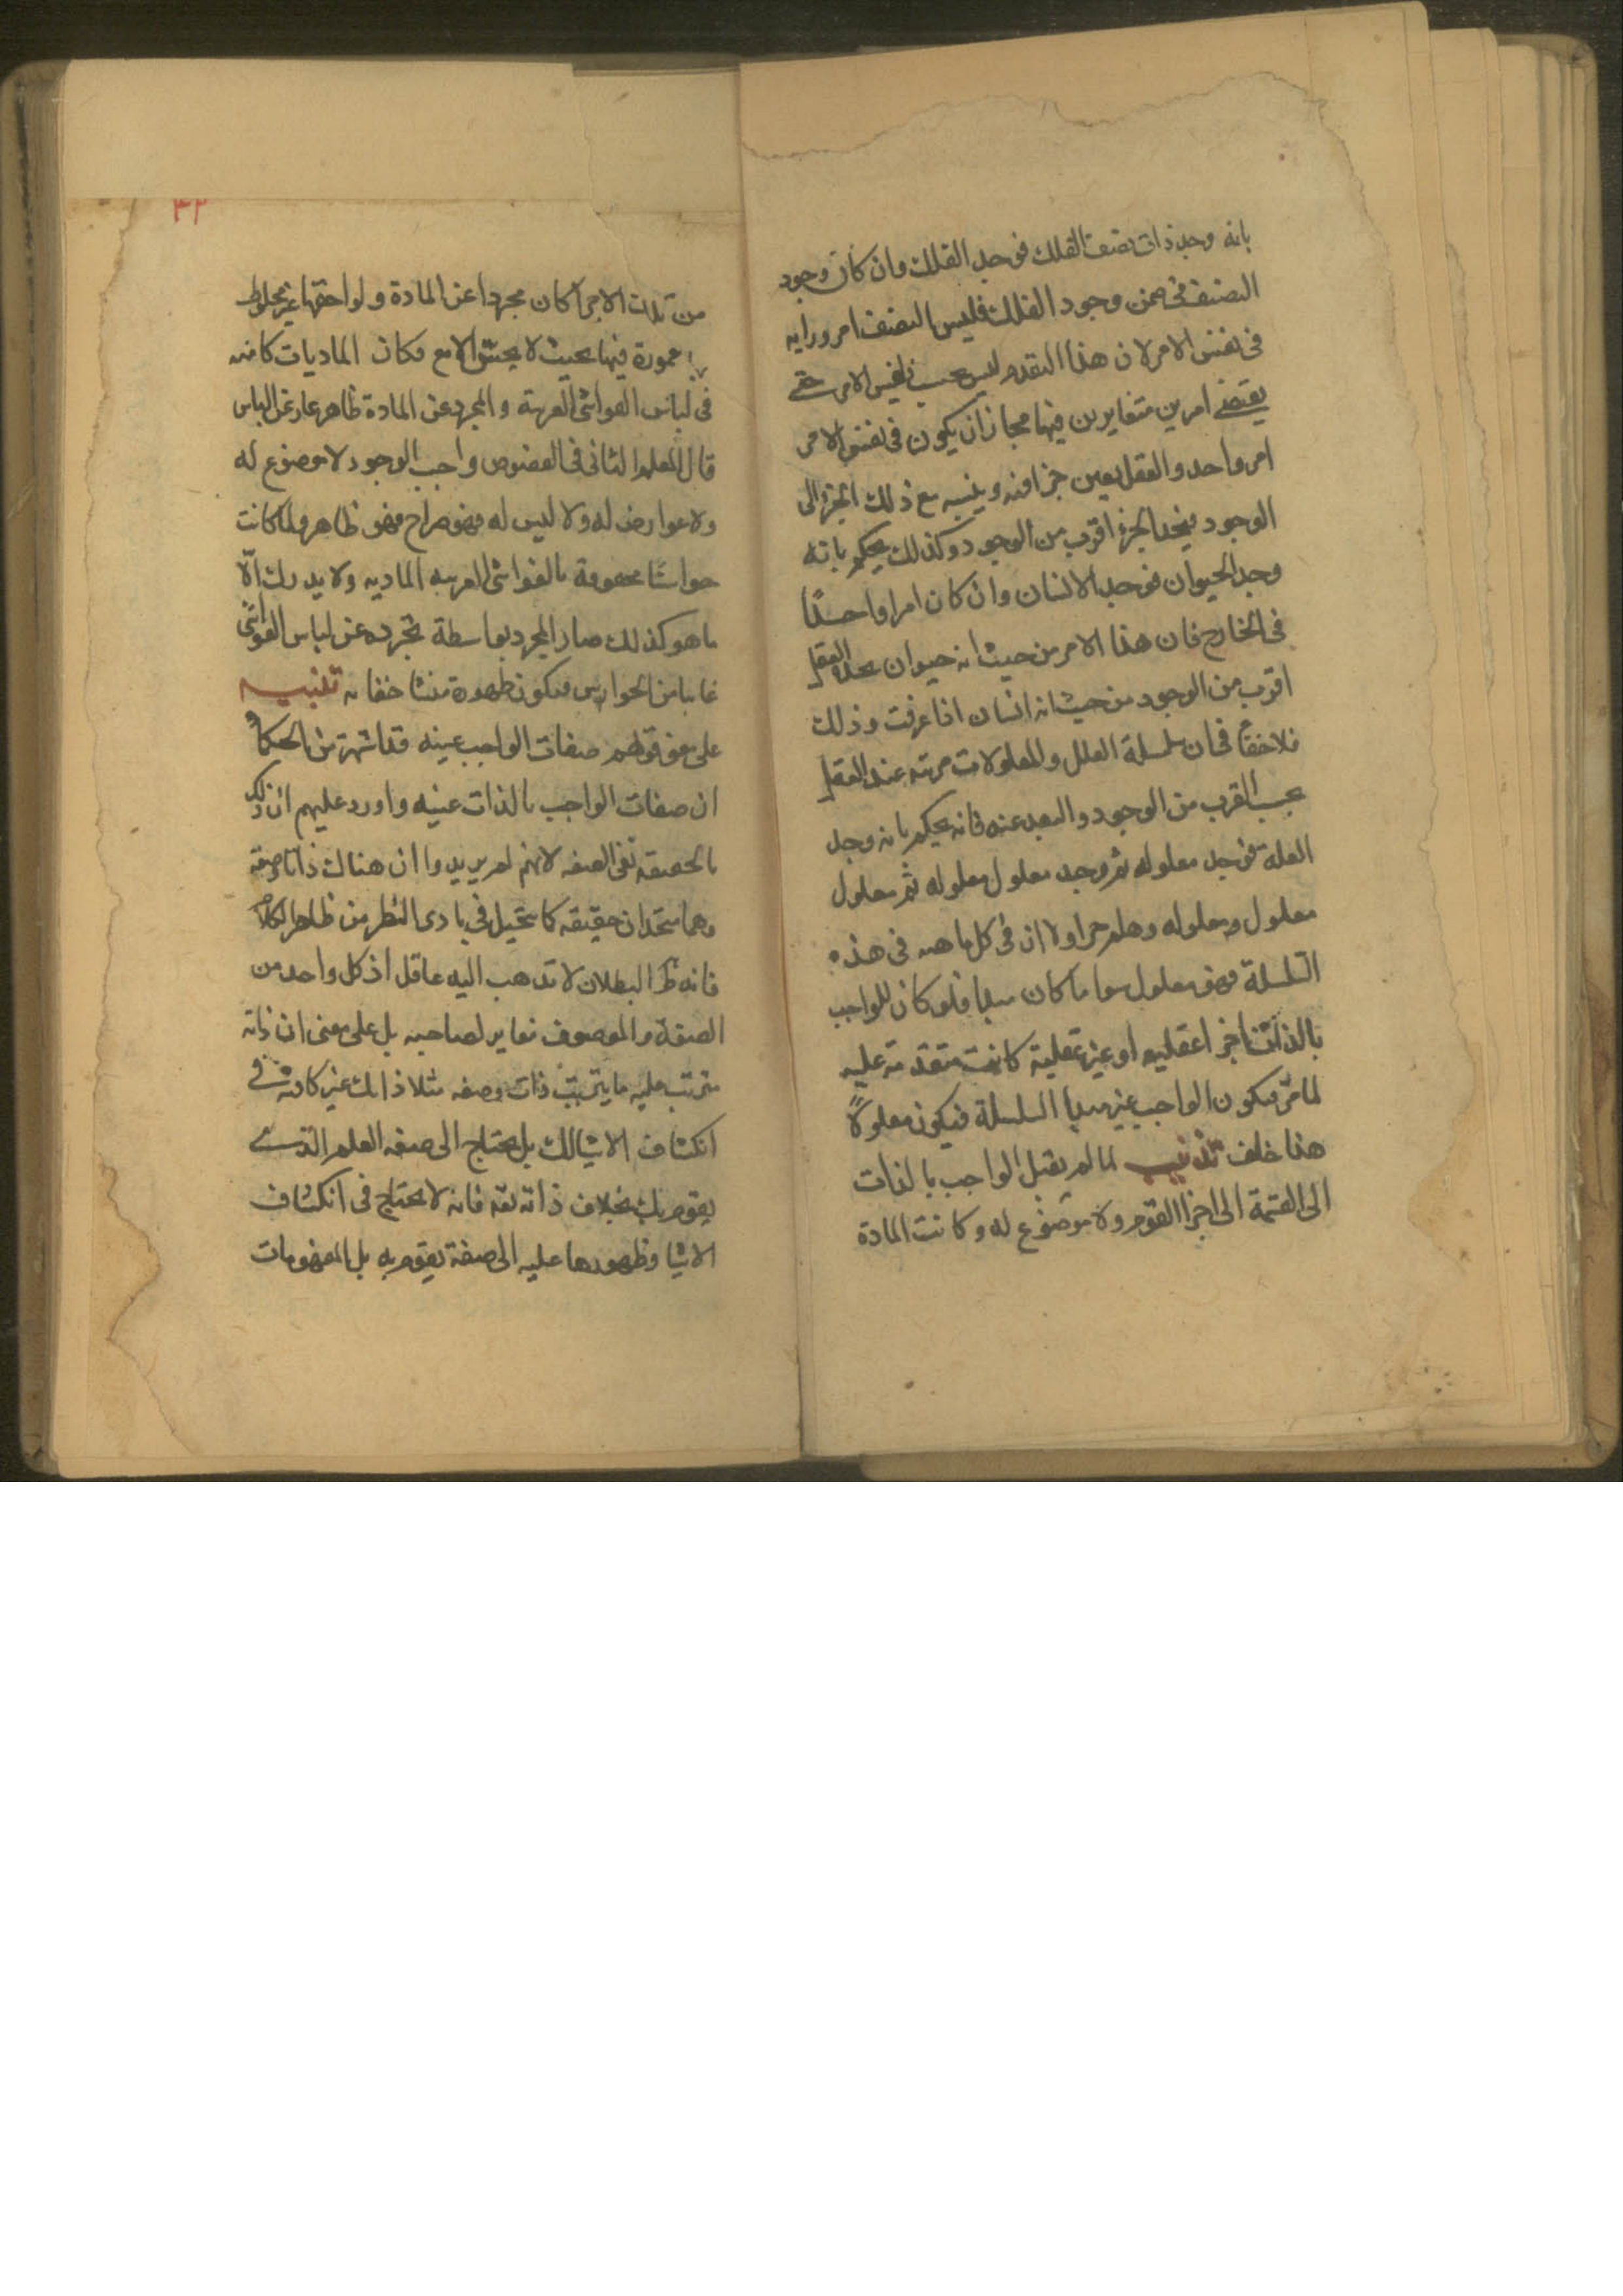 بانه وجد ذات نصف الفلك فوجد الفلك وان كان وجود
النصف في ضمن وجود الفلك فليس النصف امر ورايه
في نفس الامر لان هذا التقدم ليس بحسب نفس الامر حتى
يقتضي امرين متغايرين فيها مجاز ان يكون في نفس الامر
امر واحد والعقل يعين جزا منه وينسبه مع ذلك الجزء الى
الوجود فيجد الجزء اقرب من الوجود وكذلك يحكم بانه
وجد الحيوان فوجد الانسان وان كان امرا واحدًا
في الخارج فان هذا الامر من حيث انه حيوان يجده العقل
اقرب من الوجود من حيث انه انسان اذا عرفت وذلك
فلا خفأ في ان سلسلة العلل والمعلولات مرتبه عند العقل
بحسب القرب من الوجود والبعد عنه فانه يحكم بانه وجد
العلة فوجد معلوله ثم وجد معلول معلوله ثم معلول
معلول معلوله وهلم جرا ولا ان في كل ما هيه في هذه
السلسلة فهو معلول سوا ما كان مبدا فلو كان للواجب
بالذات اجزا عقليه او غير عقلية كانت متقدمة عليه
لما مرّ فيكون الواجب غير مبدا السلسلة فيكون معلولًا
هذا خلف تذنيب لما لم يقبل الواجب بالذات
الى القسمة الى اجزا القوم ولا موضوع له وكانت المادة
٣٢
من تلك الاجزا كان مجردا عن المادة ولواحقها غير مخلوط
مغمورة فيها بحيث لا يحس الا مع فكان الماديات كامنه
في لباس الغواشي الغريبة والمجرد عن المادة ظاهر عار عن اللباس
قال المعلم الثاني في الفصوص واجب الوجود لا موضوع له
ولا عوارض له ولا لبس له فهو صراح فهو ظاهر ولما كانت
حواسنا محفوفة بالغواشي الغريبه الماديه ولا يدرك الّا
ما هو كذلك صار المجرد بواسطة تجرده عن لباس الغواشي
غايبا من الحواس فيكون ظهوره منشا خفائه تنبيه
على معنى قولهم صفات الواجب عينه قد اشتهر من الحكماء
ان صفات الواجب بالذات عينه واورد عليهم ان ذلك
بالحقيقه نفي الصفه لانهم لم يريدوا ان هناك ذاتا وصفة
وهما متحدان حقيقه كما يتخيل في بادى النظر من ظاهر الكلام
فانه ظ البطلان لا تذهب اليه عاقل اذ كل واحد من
الصفة والموصوف مغاير لصاحبه بل على معنى ان ذاته
يترتب عليه ما يترتب ذات وصفه مثلا ذاتك غير كافية في
انكشاف الاشيا لك بل يحتاج الى صفه العلم الذي
يقوم بك بخلاف ذاته تعه فانه لا يحتاج في انكشاف
الاشيا وظهورها عليه الى صفة يقوم به بل المفهومات